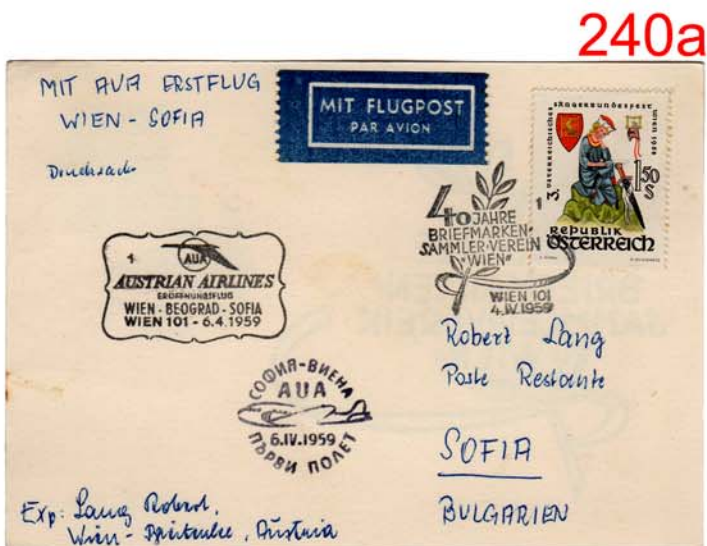 240a
MIT AUA ERSTFLUG
WIEN - SOFIA
Drucksache
MIT FLUGPOST
PAR AVION
3. ÖSTERREICHISCHES SÄNGERBUNDESFEST WIEN 1958
1.50
S
REPUBLIK
ÖSTERREICH
40 JAHRE
BRIEFMARKEN-
SAMMLER-VEREIN
"WIEN"
1
WIEN 101
4.IV.1959
1
AUA
AUSTRIAN AIRLINES
ERÖFFNUNGSFLUG
WIEN - BEOGRAD - SOFIA
WIEN 101 - 6.4.1959
СОФИЯ-ВИЕНА
AUA
6.IV.1959
ПЪРВИ ПОЛЕТ
Robert Lang
Poste Restante
SOFIA
BULGARIEN
Exp: Lang Robert,
Wien - Breitenlee, Austria